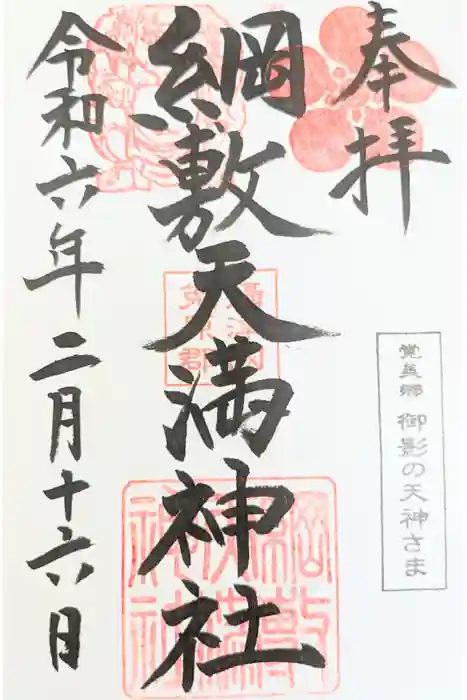 奉拝
綱敷天満神社
令和六年二月十六日
覚美郷 御影の天神さま
綱敷天満神社